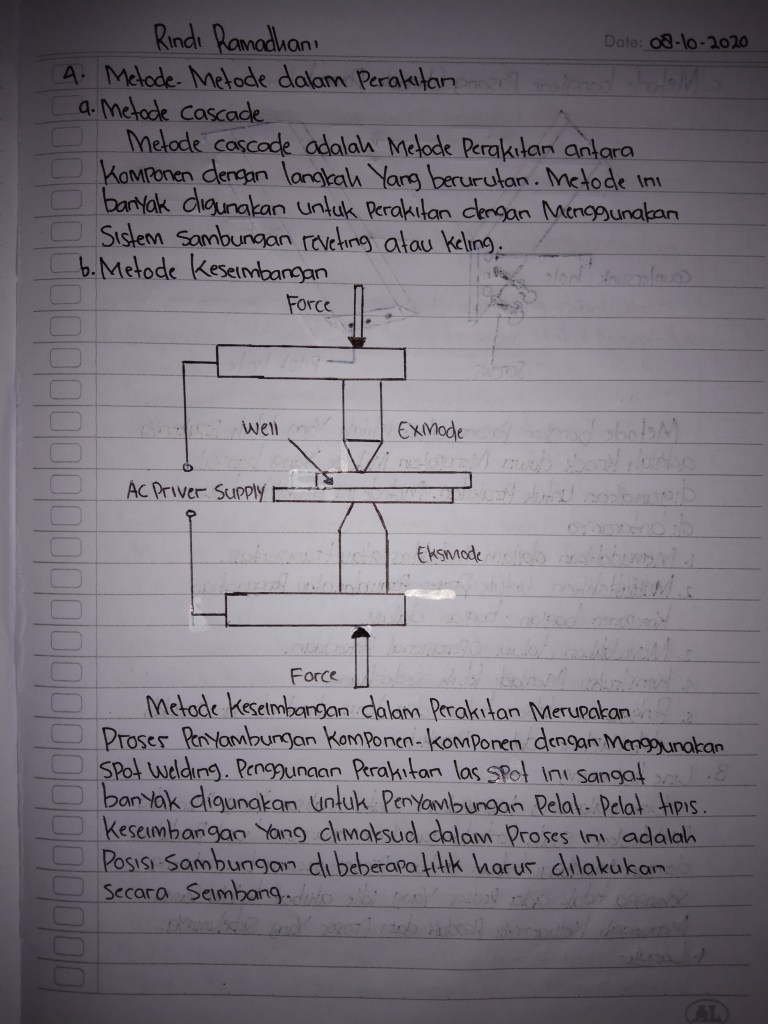 Rindi Ramadhani
Date: 08-10-2020
4. Metode-Metode dalam Perakitan
a. Metode Cascade
Metode cascade adalah Metode Perakitan antara
Komponen dengan langkah Yang berurutan. Metode ini
banyak digunakan untuk Perakitan dengan Menggunakan
Sistem Sambungan reveting atau Keling.
b. Metode Keseimbangan
Force
Well
Exmode
AC Priver SUPPLY
Eksmode
Force
Metode Keseimbangan dalam Perakitan Merupakan
Proses Penyambungan Komponen-komponen dengan Menggunakan
SPot Welding. Penggunaan Perakitan las SPot ini sangat
banyak digunakan untuk Penyambungan Pelat-Pelat tipis.
Keseimbangan Yang dimaksud dalam Proses ini adalah
Posisi Sambungan di beberapa titik harus dilakukan
Secara Seimbang.
AL